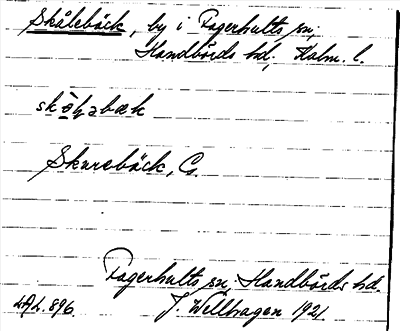 Skålebäck, by i Fagerhults sn,
Handbörds hd, Kalm. l.
skò̱ḷabæk
Skurebäck, G.
Fagerhults sn, Handbörds hd.
LAL. 896. J. Wellhagen 1921.